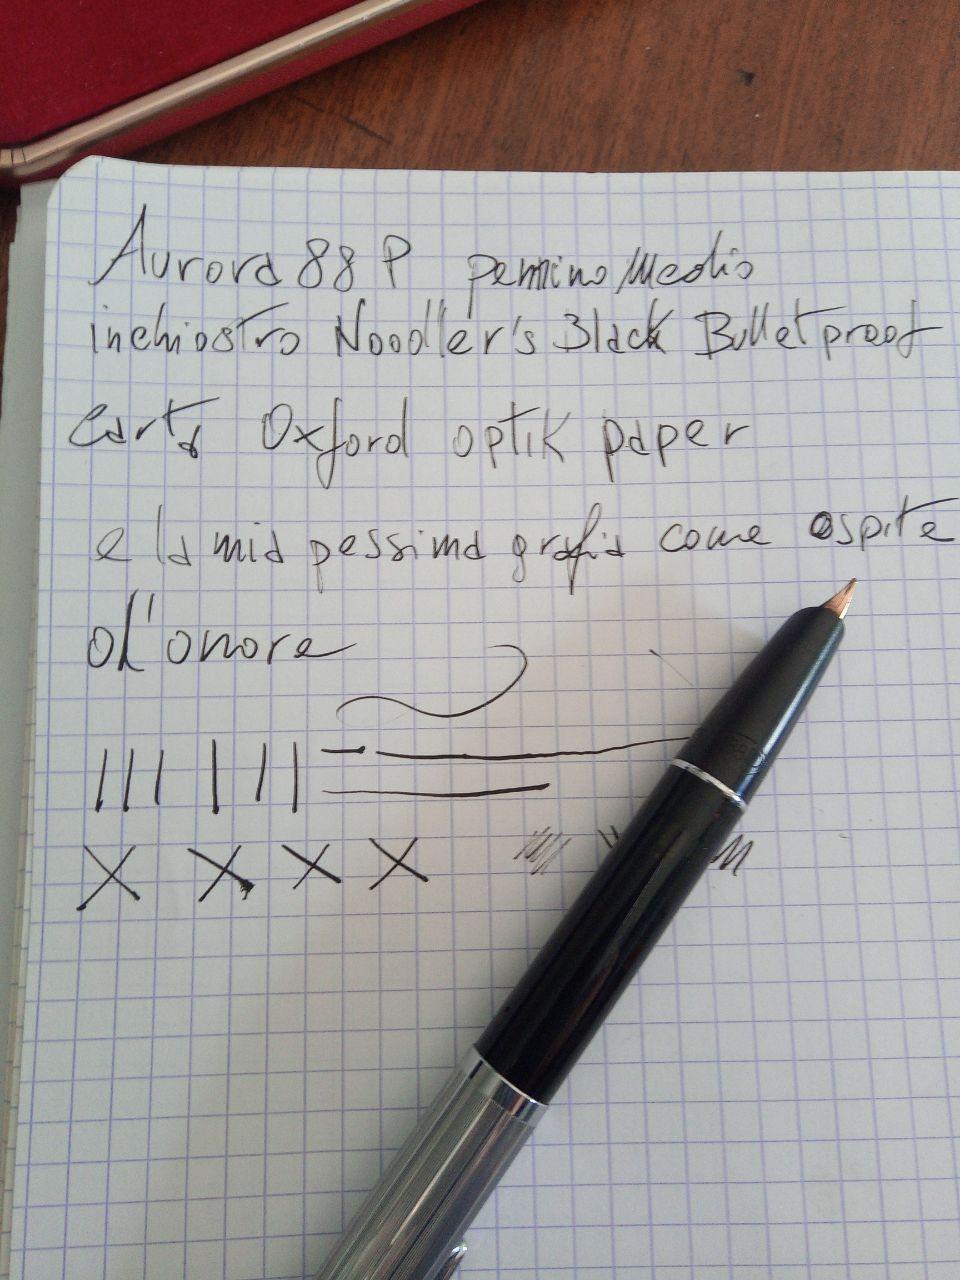 Aurora 88 P pennino Medio
inchiostro Noodler's Black Bulletproof
Carta Oxford optik paper
e la mia pessima grafia come ospite
d'onore